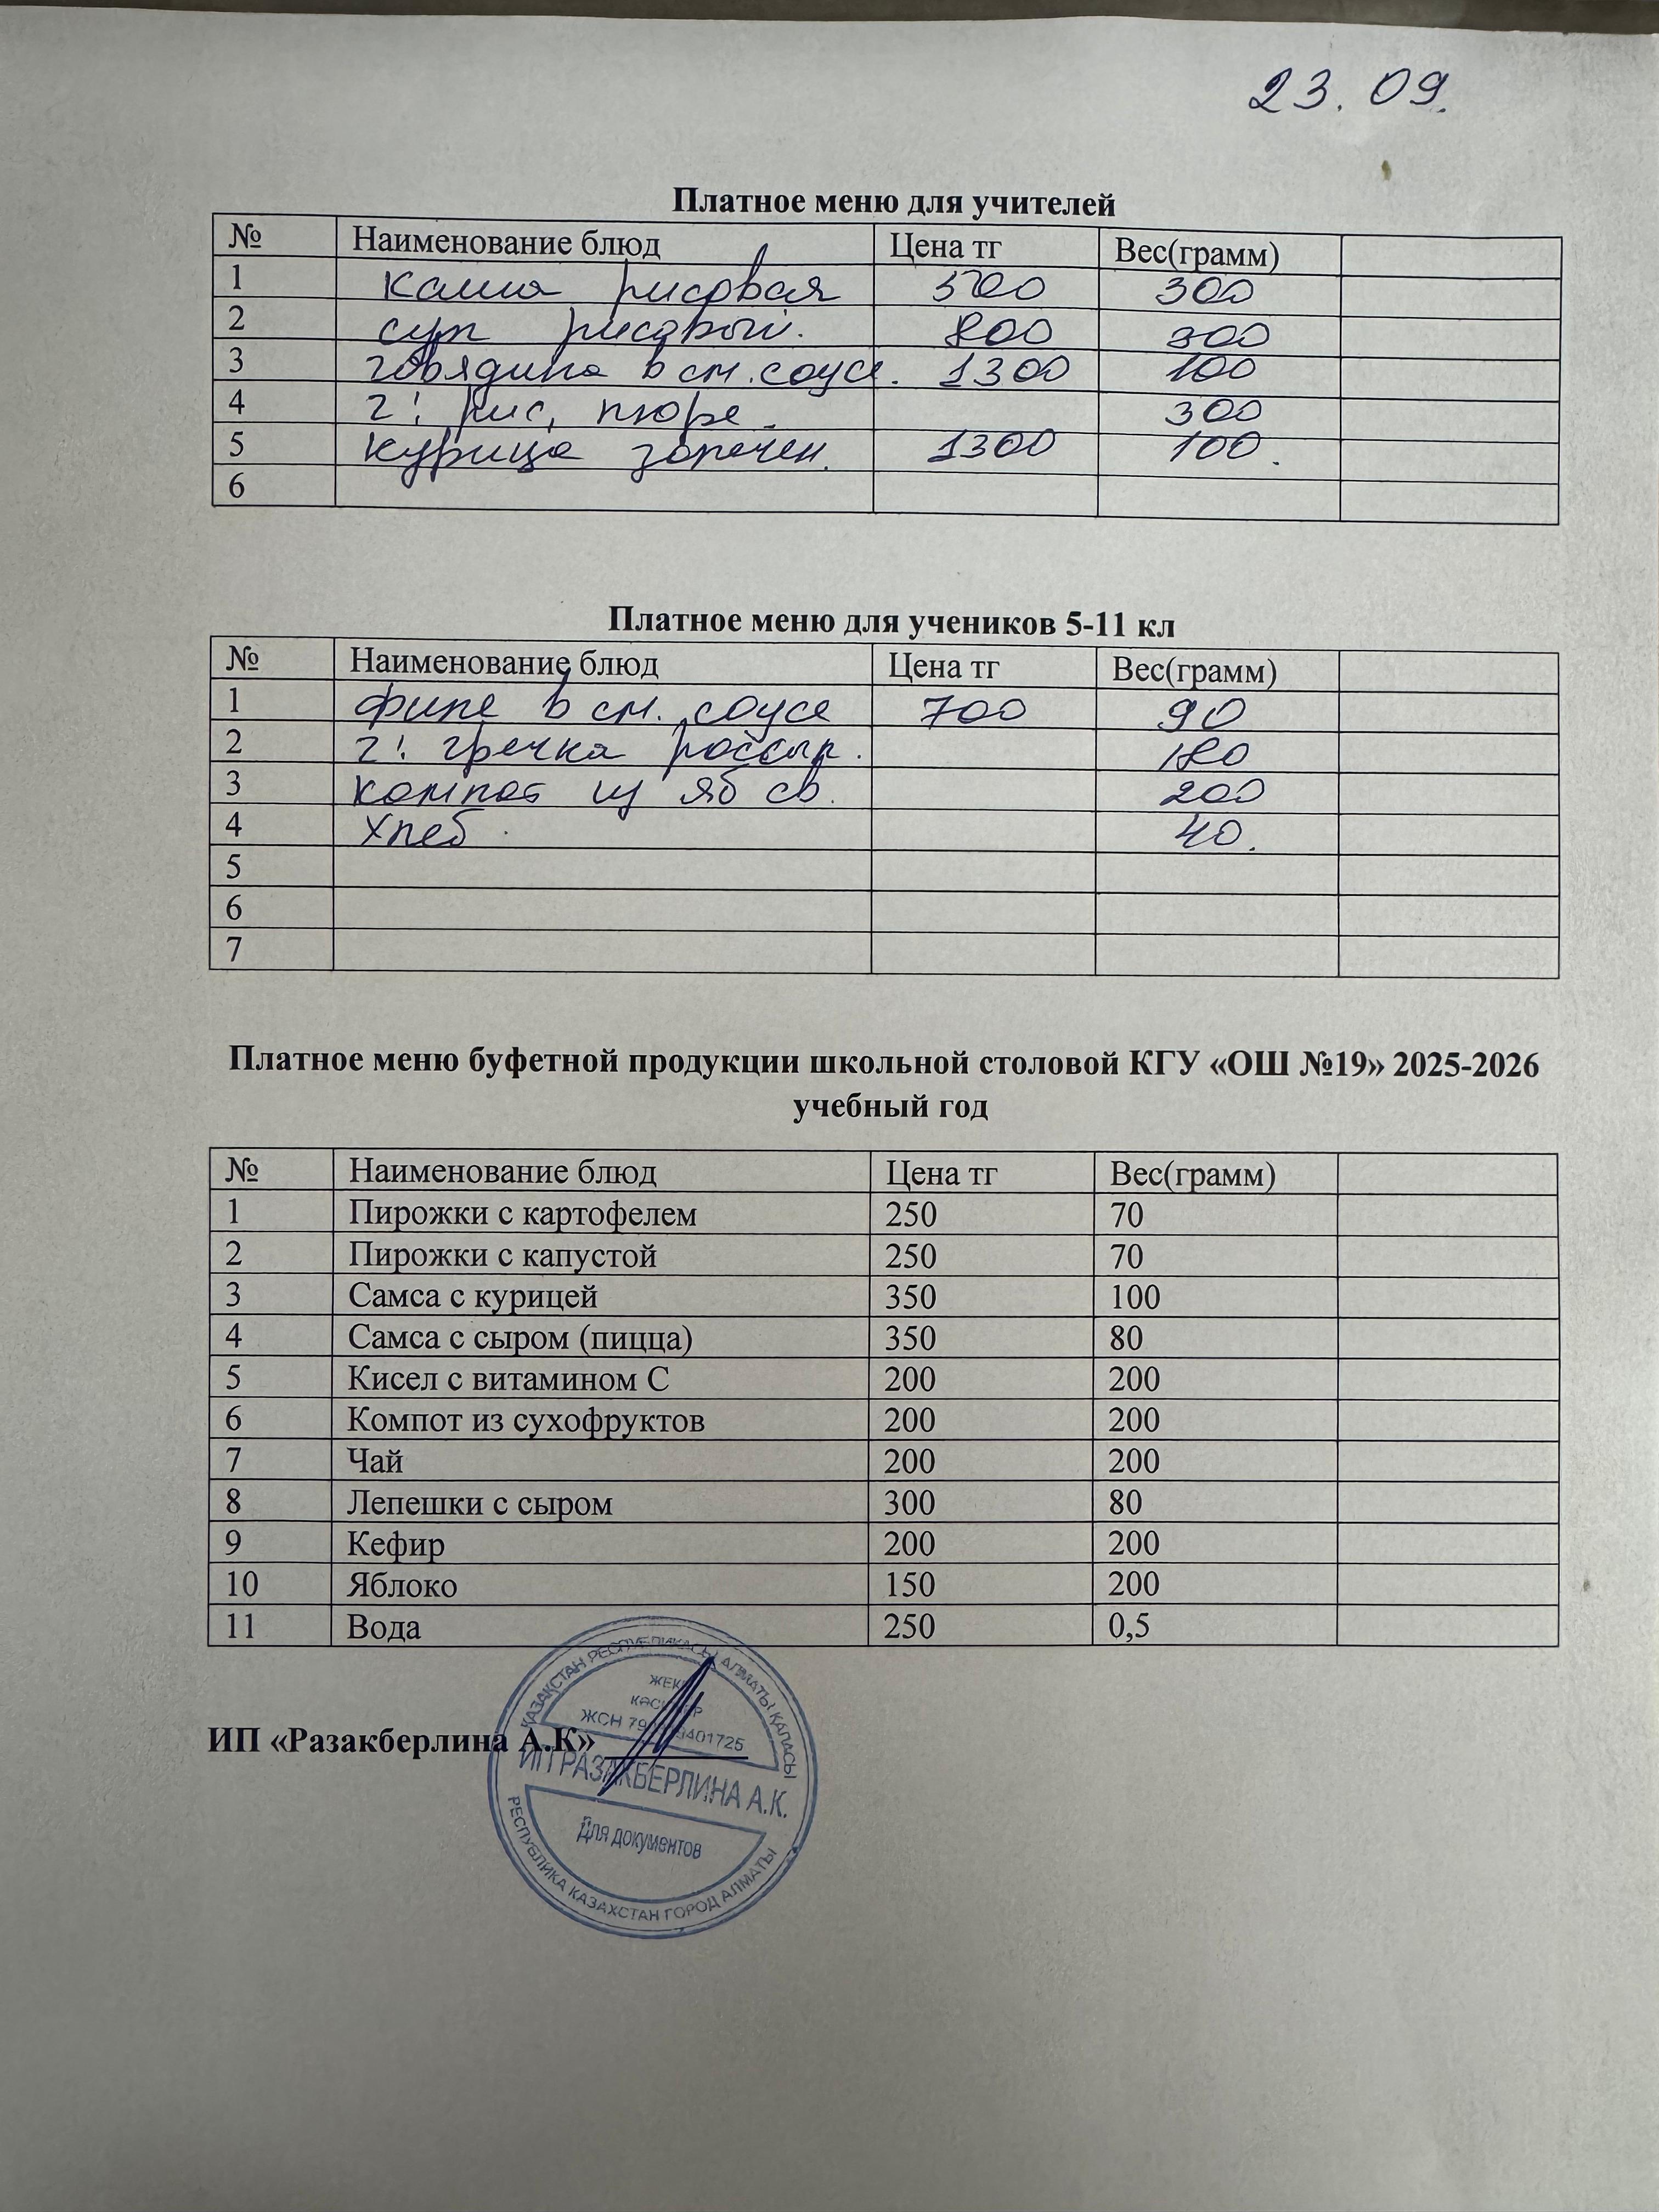 23.09.
Платное меню для учителей
№ Наименование блюд Цена тг Вес(грамм)
1 каша рисовая 500 300
2 суп рисовый. 800 300
3 говядина в см. соусе. 1300 100
4 г: рис, пюре. 300
5 курица запечен. 1300 100.
6
Платное меню для учеников 5-11 кл
№ Наименование блюд Цена тг Вес(грамм)
1 филе в см. соусе 700 90
2 г: гречка рассып. 180
3 компот из яб св. 200
4 хлеб. 40.
5
6
7
Платное меню буфетной продукции школьной столовой КГУ «ОШ №19» 2025-2026
учебный год
№ Наименование блюд Цена тг Вес(грамм)
1 Пирожки с картофелем 250 70
2 Пирожки с капустой 250 70
3 Самса с курицей 350 100
4 Самса с сыром (пицца) 350 80
5 Кисел с витамином С 200 200
6 Компот из сухофруктов 200 200
7 Чай 200 200
8 Лепешки с сыром 300 80
9 Кефир 200 200
10 Яблоко 150 200
11 Вода 250 0,5
ИП «Разакберлина А.К»
ҚАЗАҚСТАН РЕСПУБЛИКАСЫ АЛМАТЫ ҚАЛАСЫ
ЖЕКЕ
ЖСН
ИП РАЗАКБЕРЛИНА А.К.
Для документов
РЕСПУБЛИКА КАЗАХСТАН ГОРОД АЛМАТЫ